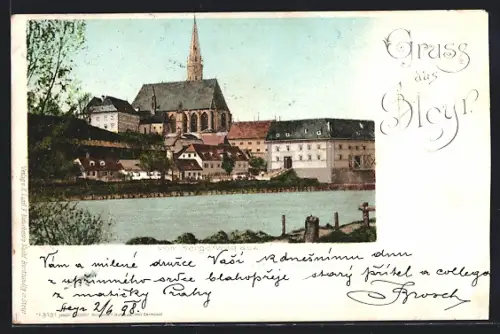 Gruss
aus
Steyr
Vám a milené družce Vaší k dnešnímu dnu
z upřímného srdce blahopřeje starý přítel a collega
z matičky Prahy
Steyr 2/6 98.
Brosch